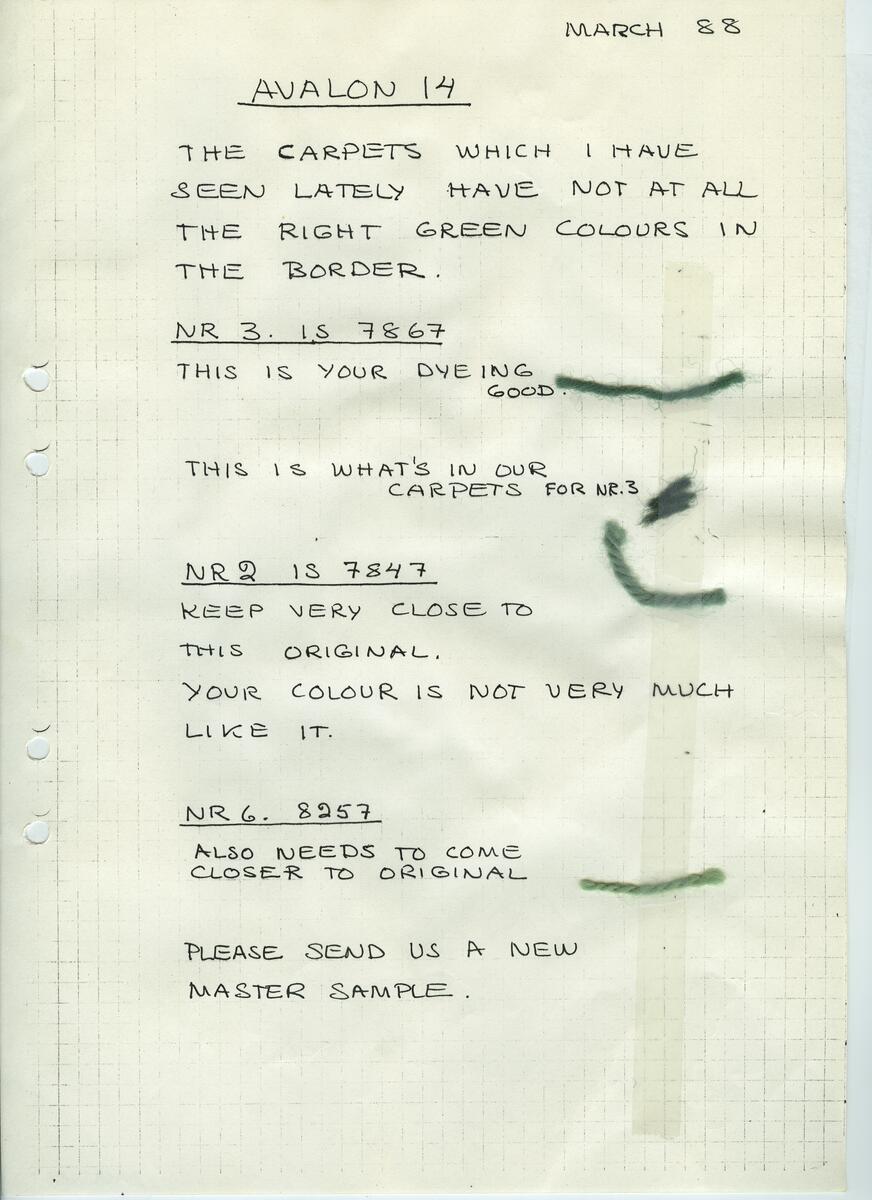 MARCH 88
AVALON 14
THE CARPETS WHICH I HAVE
SEEN LATELY HAVE NOT AT ALL
THE RIGHT GREEN COLOURS IN
THE BORDER.
NR 3. IS 7867
THIS IS YOUR DYEING
GOOD.
THIS IS WHAT'S IN OUR
CARPETS FOR NR.3
NR 2 IS 7847
KEEP VERY CLOSE TO
THIS ORIGINAL.
YOUR COLOUR IS NOT VERY MUCH
LIKE IT.
NR 6. 8257
ALSO NEEDS TO COME
CLOSER TO ORIGINAL
PLEASE SEND US A NEW
MASTER SAMPLE.